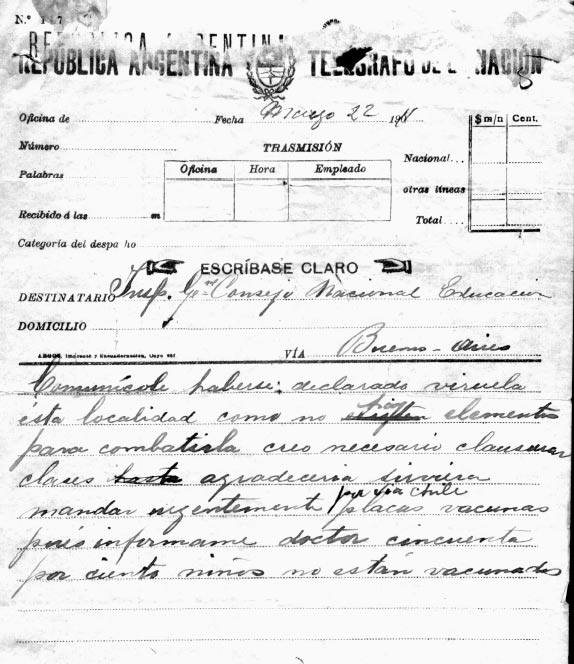 N.º 1 7
REPÚBLICA ARGENTINA
REPÚBLICA ARGENTINA TELÉGRAFO DE LA NACIÓN
Oficina de Fecha Marzo 22 191
$ m/n Cent.
Número TRASMISIÓN
Nacional
Palabras Oficina Hora Empleado
otras líneas
Recibido á las m
Total
Categoría del despacho
ESCRÍBASE CLARO
DESTINATARIO Insp. Gral Consejo Nacional Educacion
DOMICILIO
VÍA Buenos-Aires
Comunícole haberse declarado viruela
ésta localidad como no hay elementos
para combatirla creo necesario clausurar
clases hasta agradeceria sirviera
mandar urgentemente por via Chile placas vacunas
pués informame doctor cincuenta
por ciento niños no están vacunados